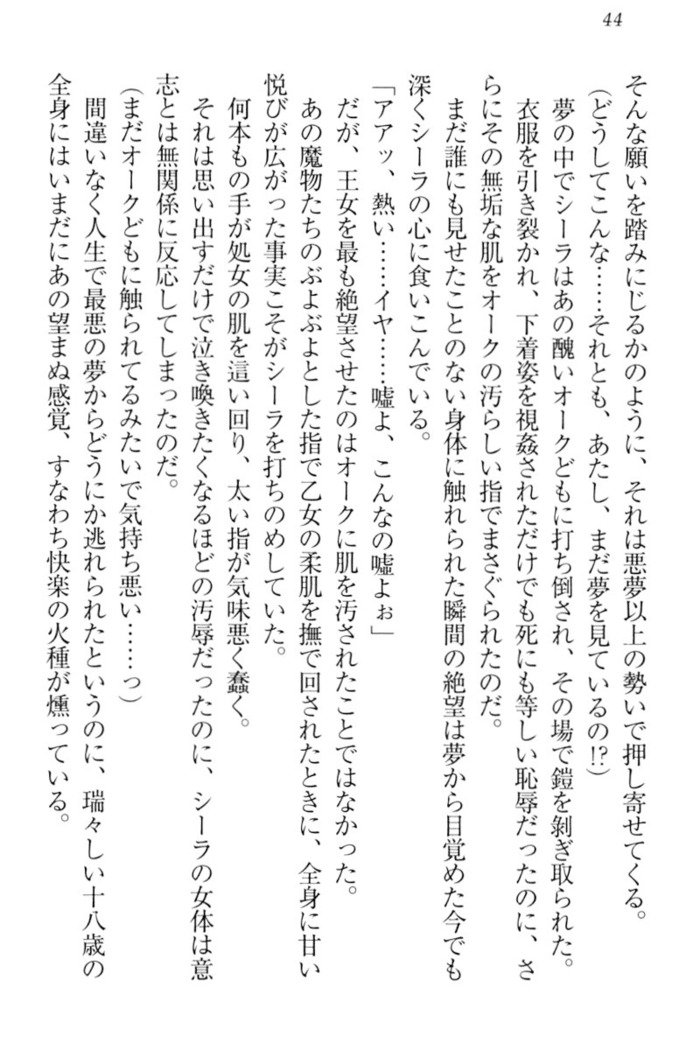 44
そんな願いを踏みにじるかのように、それは悪夢以上の勢いで押し寄せてくる。
（どうしてこんな……それとも、あたし、まだ夢を見ているの!?）
夢の中でシーラはあの醜いオークどもに打ち倒され、その場で鎧を剥ぎ取られた。
衣服を引き裂かれ、下着姿を視姦されただけでも死にも等しい恥辱だったのに、さ
らにその無垢な肌をオークの汚らしい指でまさぐられたのだ。
まだ誰にも見せたことのない身体に触れられた瞬間の絶望は夢から目覚めた今でも
深くシーラの心に食いこんでいる。
「アアッ、熱い……イヤ……嘘よ、こんなの嘘よぉ」
だが、王女を最も絶望させたのはオークに肌を汚されたことではなかった。
あの魔物たちのぶよぶよとした指で乙女の柔肌を撫で回されたときに、全身に甘い
悦びが広がった事実こそがシーラを打ちのめしていた。
何本もの手が処女の肌を這い回り、太い指が気味悪く蠢く。
それは思い出すだけで泣き喚きたくなるほどの汚辱だったのに、シーラの女体は意
志とは無関係に反応してしまったのだ。
（まだオークどもに触られてるみたいで気持ち悪い……っ）
間違いなく人生で最悪の夢からどうにか逃れられたというのに、瑞々しい十八歳の
全身にはいまだにあの望まぬ感覚、すなわち快楽の火種が燻っている。